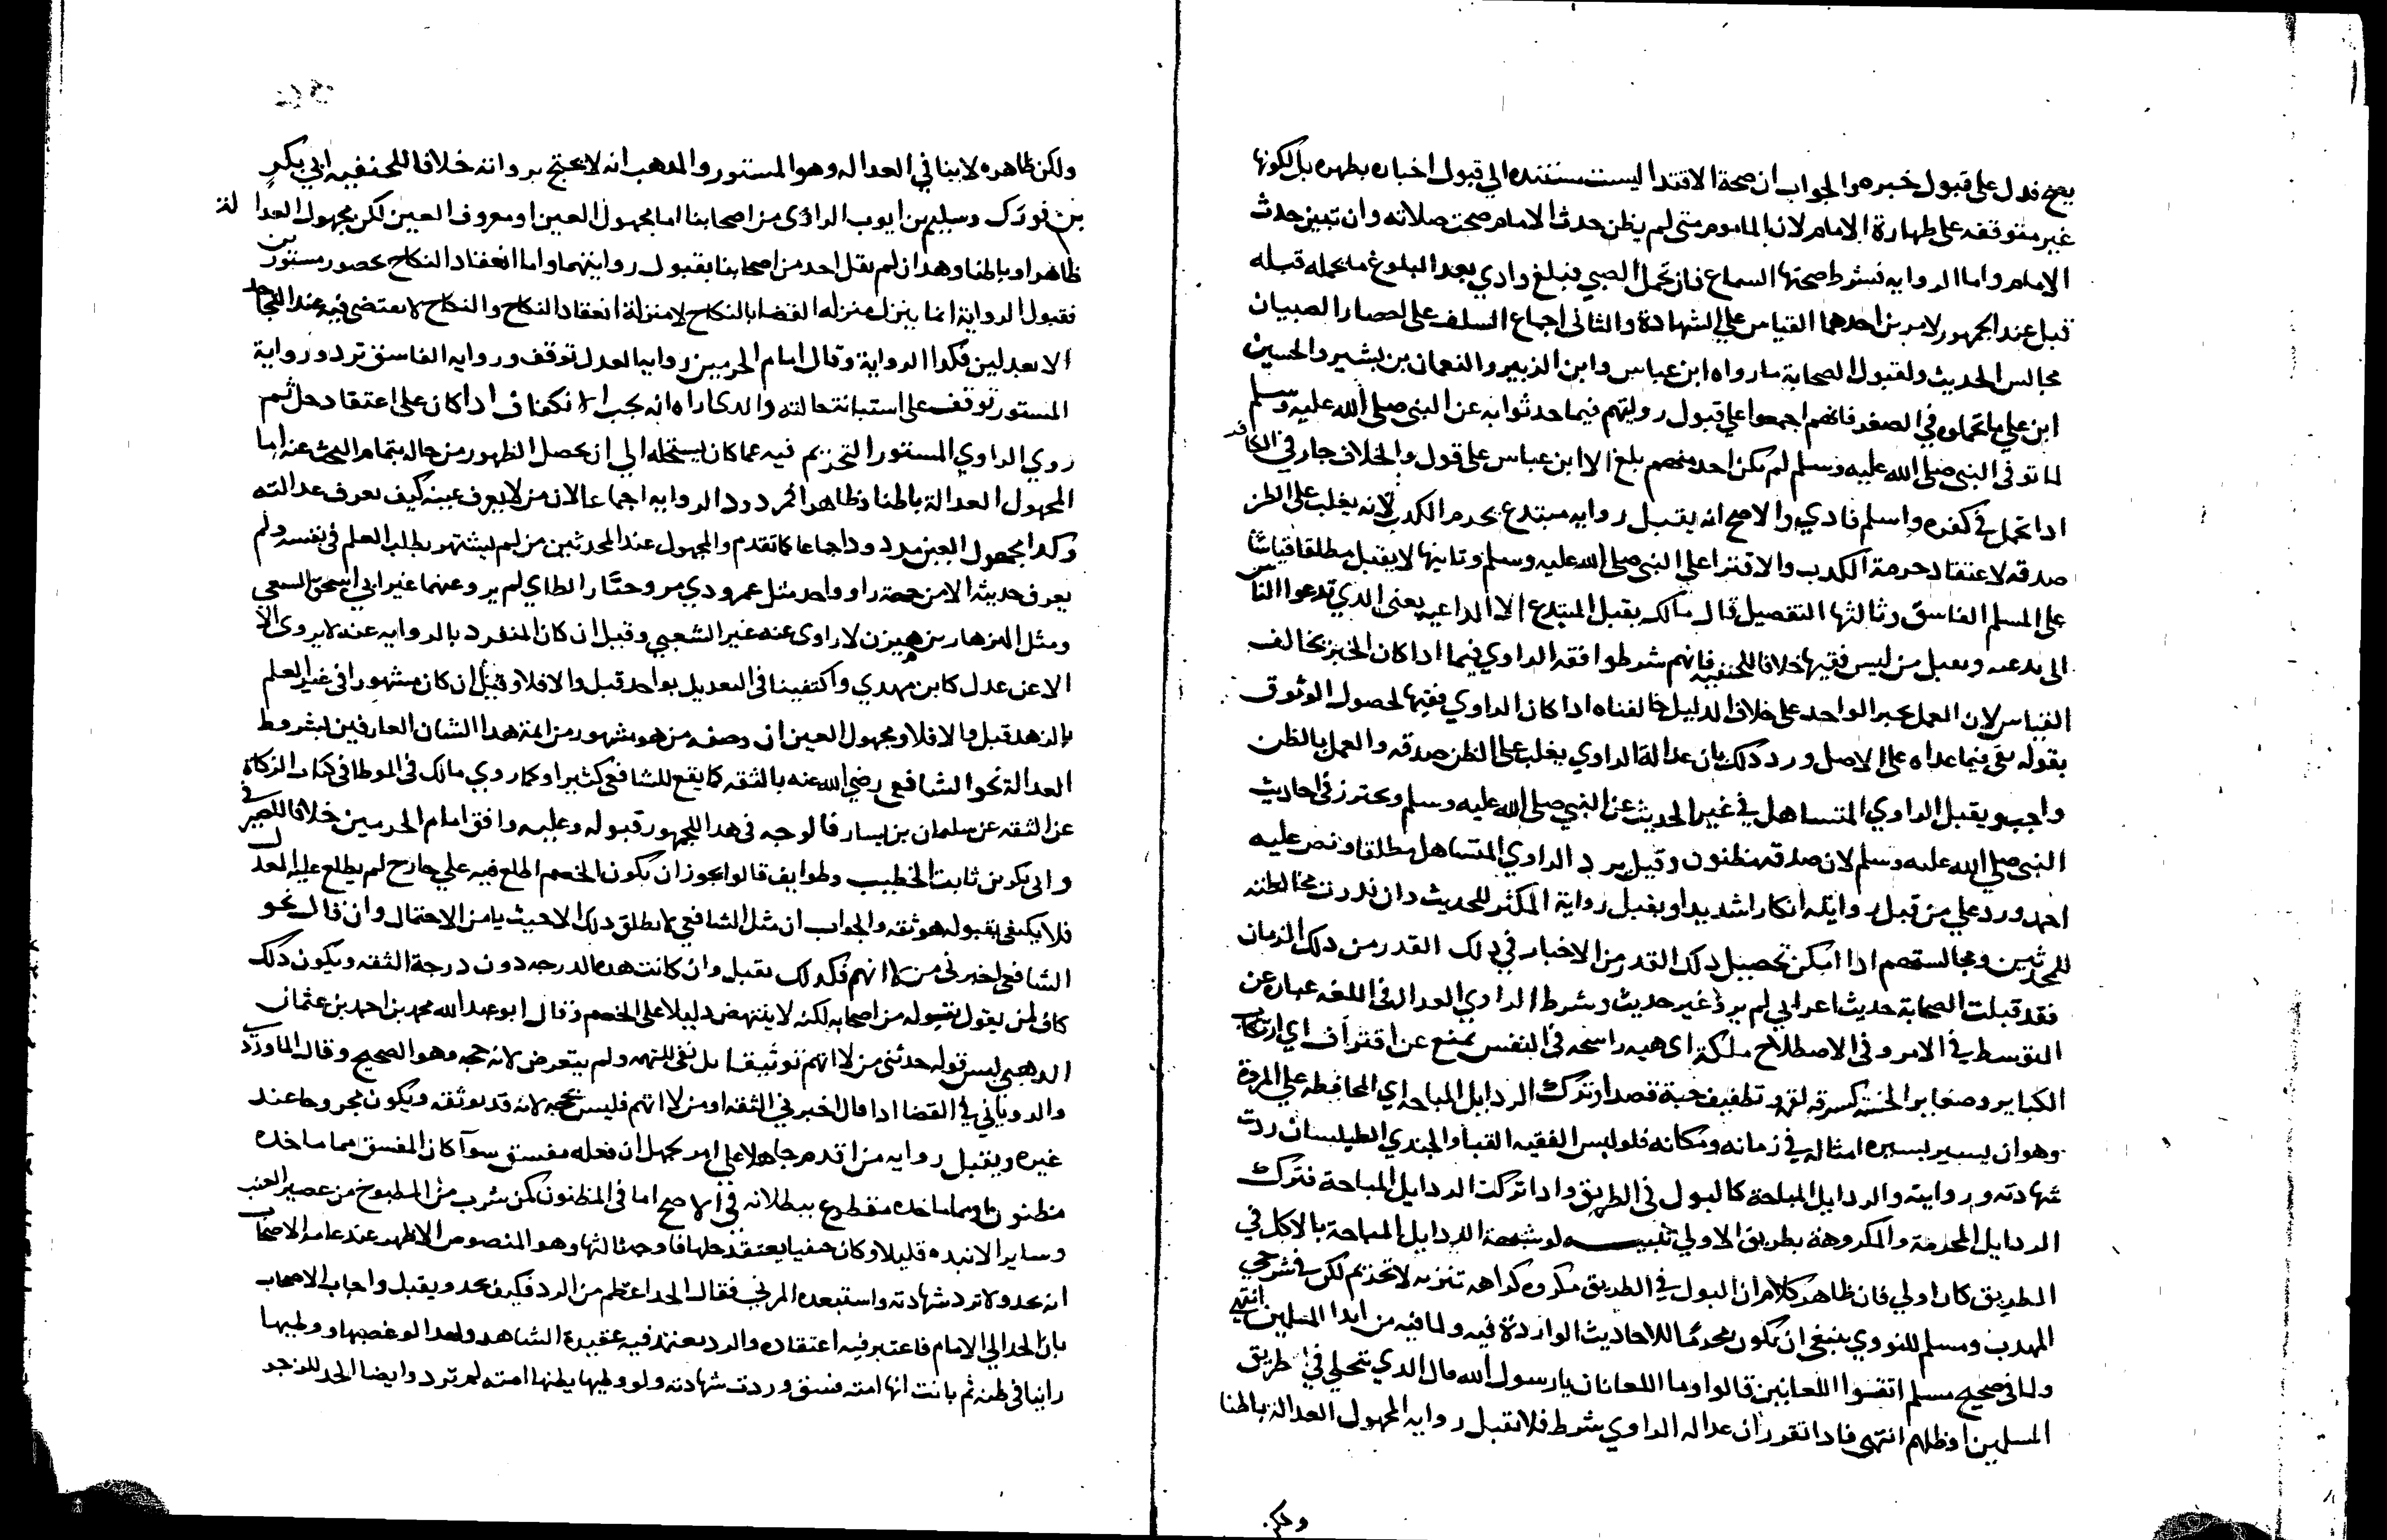 يصح فدل على قبول خبره والجواب ان صحة الاقتدا ليست مستنده الي قبول اخباره بطهره بل لكونها
غير متوقفه على طهارة الامام لان الماموم متى لم يظن حدث الامام صحت صلاته وان تبين حدث
الامام واما الروايه فشرط صحتها السماع فان تحمل الصبي فبلغ وادي بعد البلوغ ما تحمله قبله
قبل عند الجمهور لامرين احدهما القياس على الشهادة والثاني اجماع السلف على احضار الصبيان
مجالس الحديث ولقبول الصحابة ما رواه ابن عباس وابن الزبير والنعمان بن بشير والحسين
ابن علي ما تحملوه في الصغر فانهم اجمعوا على قبول روايتهم فيما حدثوا به عن النبي صلى الله عليه وسلم
لما توفى النبي صلى الله عليه وسلم لم يكن احد منهم بلغ الا ابن عباس على قول والخلاف جار في الكافر
اذا تحمل في كفره واسلم فادي والاصح انه يقبل روايه مبتدع يحرم الكذب لانه يغلب على الظن
صدقه لاعتقاد حرمة الكذب والافترا علي النبي صلى الله عليه وسلم وثانيها لا يقبل مطلقا قياسا
على المسلم الفاسق وثالثها التفصيل قال مالك يقبل المبتدع الا الداعيه يعنى الذي تدعوا الناس
الى بدعته ويقبل من ليس فقيها خلافا للحنفيه فانهم شرطوا فقه الراوي فيما اذا كان الخبر يخالف
القياس لان العمل بخبر الواحد على خلاف الدليل خالفناه اذا كان الراوي فقيها لحصول الوثوق
بقوله بقى فيما عداه على الاصل ورد ذلك بان عدالة الراوي يغلب على الظن صدقه والعمل بالظن
واجب ويقبل الراوي المتساهل في غير الحديث عن النبي صلى الله عليه وسلم ويحترز في احاديث
النبي صلى الله عليه وسلم لان صدقه مظنون وقيل يرد الراوي المتساهل مطلقا ونص عليه
احمد ورد علي من قبل روايته انكارا شديدا ويقبل رواية المكثر للحديث وان ندرت مخالطته
للمحدثين ومجالستهم اذا امكن تحصيل ذلك القدر من الاخبار في ذلك القدر من ذلك الزمان
فقد قبلت الصحابة حديث اعرابي لم يرو غير حديث وشرط الراوي العداله في اللغه عباره عن
التوسط في الامر وفى الاصطلاح ملكة اى هيه راسخه في النفس تمنع عن اقتراف اي ارتكاب
الكباير وصغاير الخسه كسرقة لقمه وتطفيف حبة قصدا وترك الرذايل المباحه اي المحافظه علي المروة
وهو ان يسير بسيره امثاله في زمانه ومكانه فلو لبس الفقيه القبا والجندي الطيلسان ردت
شهادته وروايته والرذايل المباحة كالبول فى الطريق واذا تركت الرذايل المباحة فترك
الرذايل المحرمة والمكروهة بطريق الاولي تنبيـــه لو شبهة الرذايل المباحة بالاكل في
الطريق كان اولي فان ظاهر كلامهم ان البول في الطريق مكروه كراهه تنزيه لا تحريم لكن في شرحي
المهذب ومسلم للنووي ينبغي ان يكون محرما للاحاديث الواردة فيه ولما فيه من ايذا المسلمين انتهى
ولما في صحيح مسلم اتقوا اللعانين قالوا وما اللعانان يا رسول الله قال الذي يتخلي في طريق
المسلمين او ظلهم انتهى فاذا تقرر ان عداله الراوي شرط فلا تقبل روايه المجهول العدالة باطنا
ولكن
ولكن ظاهره لاينافي العداله وهو المستور والمذهب انه لا يحتج بروايته خلافا للحنفيه ابي بكر
بن فورك وسليم بن ايوب الرازي من اصحابنا اما مجهول العين او معروف العين لكن مجهول العدالة
ظاهرا وباطنا وهذان لم يقل احد من اصحابنا بقبول روايتهما واما انعقاد النكاح بحضور مستورين
فقبول الرواية انما ينزل منزله القضا بالنكاح لا منزلة انعقاد النكاح والنكاح لا يقتضى فيه عند التجاحد
الا بعدلين فكذا الرواية وقال امام الحرمين روايه العدل توقف وروايه الفاسق ترد ورواية
المستور توقف على استبانة حالته والذى اراه انه يجب الانكفاف اذا كان على اعتقاد حل ثم
روي الراوي المستور التحريم فيه عما كان يستحله الي ان يحصل الظهور من حاله بتمام البحث عنه اما
المجهول العدالة باطنا وظاهرا فمردود الروايه اجماعا لان من لا يعرف عينه كيف تعرف عدالته
وكذا مجهول العين مردود اجماعا كما تقدم والمجهول عند المحدثين من لم يشتهر بطلب العلم في نفسه ولم
يعرف حديثه الا من جهة راو واحد مثل عمرو ذي مر وجبار الطاي لم يرو عنهما غير ابي اسحق السبيعي
ومثل الهزهاز بن ميزن لا راوى عنه غير الشعبي وقيل ان كان المنفرد بالروايه عنه لا يروي الا
الا عن عدل كابن مهدي واكتفينا في التعديل بواحد قبل والا فلا وقيل ان كان مشهورا في غير العلم
بالزهد قبل والا فلا ومجهول العين ان وصفه من هو مشهور من ائمة هذا الشان العارفين بشروط
العدالة نحو الشافعي رضي الله عنه بالثقه كما يقع للشافعي كثيرا وكما روي مالك في الموطا في كتاب الزكاة
عن الثقه عن سليمان بن يسار فالوجه في هذا للجمهور قبوله وعليه وافق امام الحرمين خلافا للصيرفي
وابى بكر بن ثابت الخطيب وطوايف قالوا يجوز ان يكون الخصم اطلع فيه علي جارح لم يطلع عليه المعدل
فلا يكتفى بقبوله هو ثقه والجواب ان مثل الشافعي لا يطلق ذلك الا حيث يامن الاحتمال وان قال نحو
الشافعي اخبرنى من لا اتهم فكذلك يقبل وان كانت هذه الدرجه دون درجة الثقه ويكون ذلك
كاف لمن يقول بقبوله من اصحابه لكنه لا ينتهض دليلا على الخصم وقال ابو عبد الله محمد بن احمد بن عثمان
الذهبي ليس قوله حدثني من لا اتهم توثيقا بل نفى للتهمه ولم يتعرض لانه حجه وهو الصحيح وقال الماوردي
والروياني في القضا اذا قال اخبرني الثقه او من لا اتهم فليس بحجه لانه قد يوثقه ويكون مجروحا عند
غيره ويقبل روايه من اقدم جاهلا على امر يجهل ان فعله مفسق سوآ كان المفسق مما ماخذه
مظنون او مما ماخذه مقطوع ببطلانه في الاصح اما في المظنون كمن شرب من المطبوخ من عصير العنب
وساير الانبذه قليلا وكان حنفيا يعتقد حلها فاوجه ثالثها وهو المنصوص الاظهر عند عامة الاصحاب
انه يحد ولا ترد شهادته واستبعده المزني فقال الحد اعظم من الرد فكيف يحد ويقبل واجاب الاصحاب
بان الحد الي الامام فاعتبر فيه اعتقاده والرد يعتمد فيه عقيدة الشاهد ولهذا لو غصبها ووطيها
زانيا في ظنه ثم بانت انها امته فسق وردت شهادته ولو وطيها يظنها امته لم ترد وايضا الحد للزجر